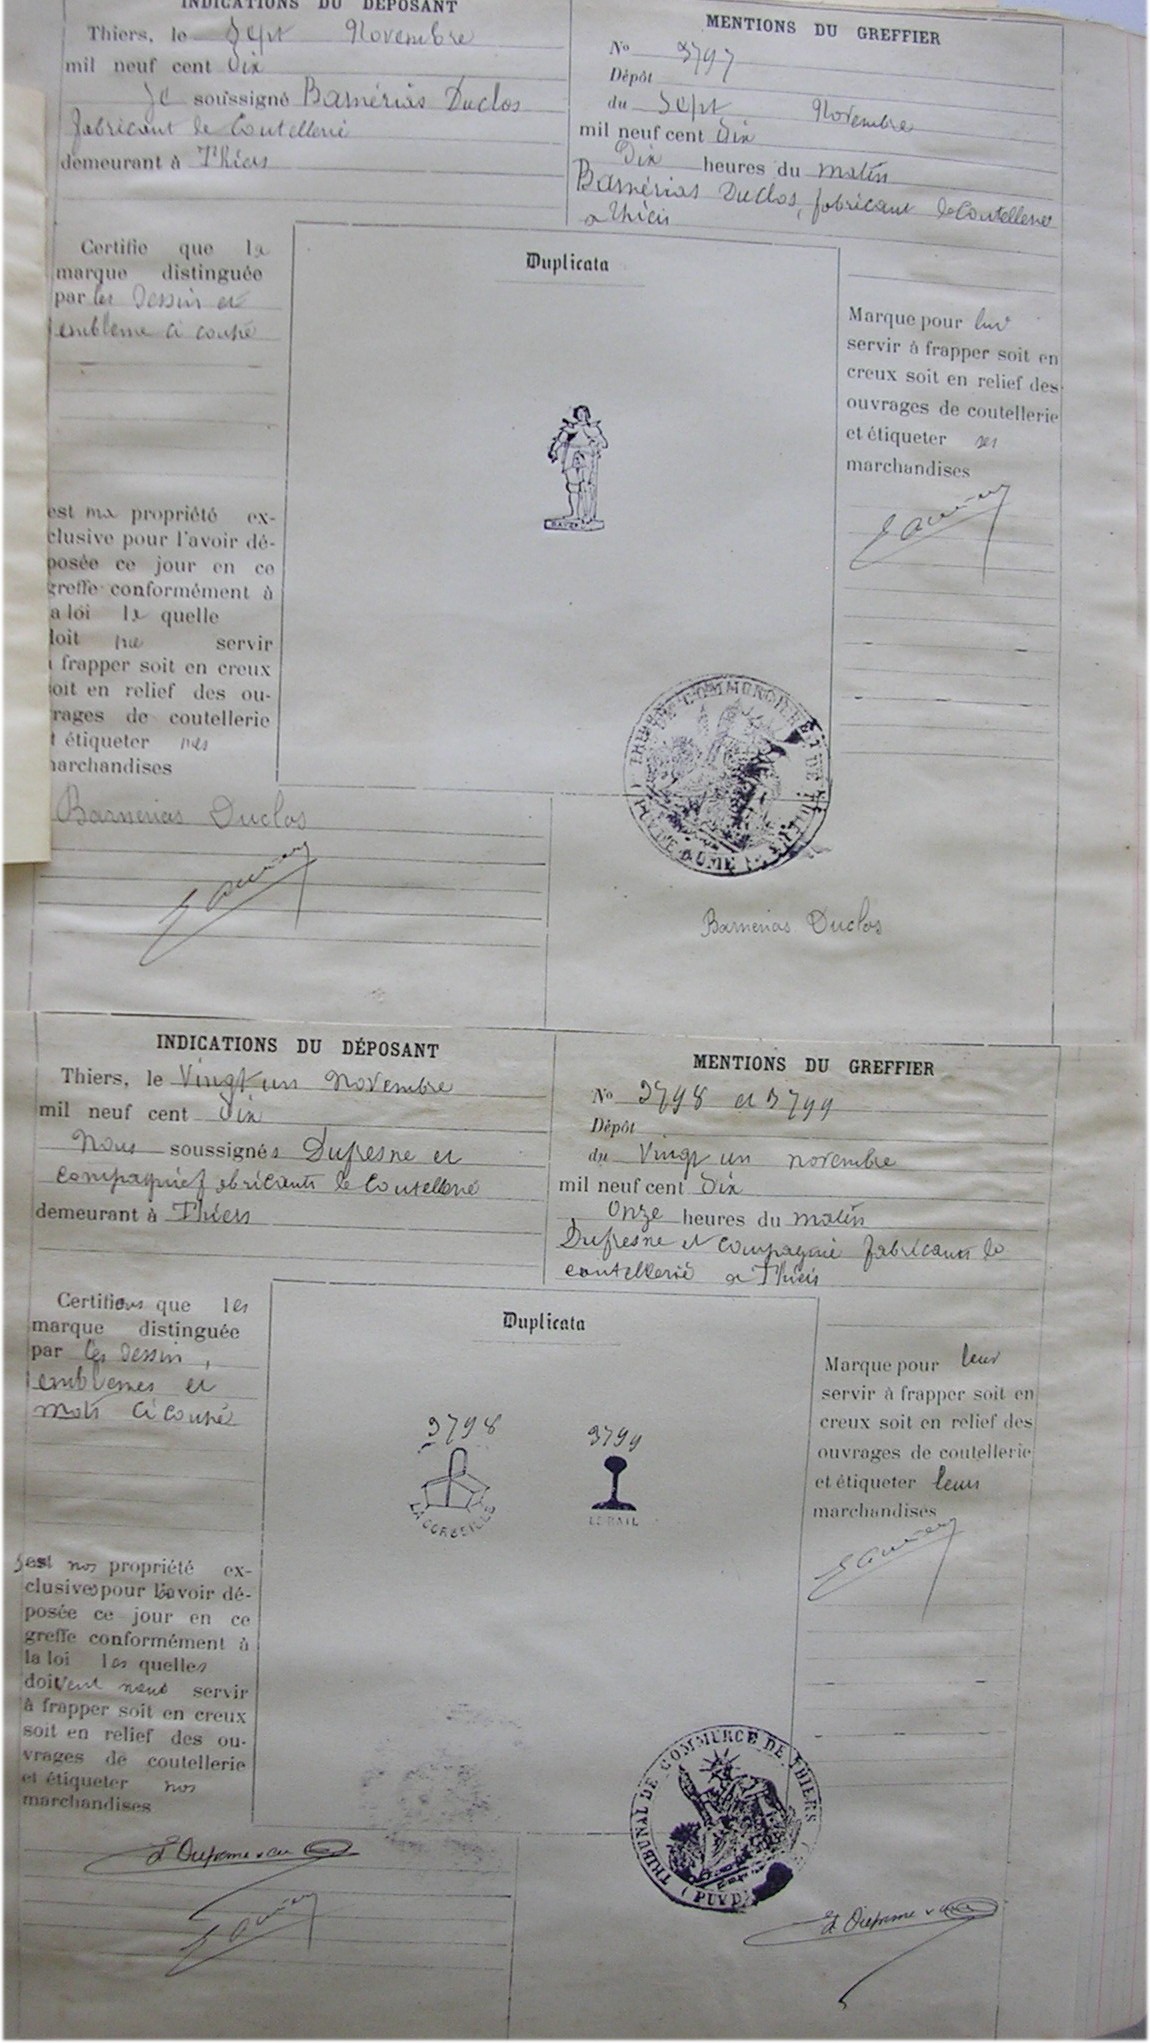 INDICATIONS DU DÉPOSANT
Thiers, le Sept Novembre
mil neuf cent Dix
Je soussigné Barnérias Duclos
fabricant de Coutellerie
demeurant à Thiers
MENTIONS DU GREFFIER
No 3797
Dépôt
du Sept Novembre
mil neuf cent Dix
Dix heures du matin
Barnérias Duclos, fabricant de Coutellerie
a Thiers
Certifie que la
marque distinguée
par les dessin et
emblème ci contre
est ma propriété ex-
clusive pour l'avoir dé-
posée ce jour en ce
greffe conformément à
a loi la quelle
doit me servir
à frapper soit en creux
soit en relief des ou-
vrages de coutellerie
t étiqueter mes
marchandises
Barnerias Duclos
Duplicata
BAYARD
Marque pour lui
servir à frapper soit en
creux soit en relief des
ouvrages de coutellerie
et étiqueter ses
marchandises
TRIBUNAL DE COMMERCE DE THIERS
PUY DE DOME
Barnerias Duclos
INDICATIONS DU DÉPOSANT
Thiers, le Vingt un Novembre
mil neuf cent Dix
Nous soussignés Dufresne et
compagnie fabricants de Coutellerie
demeurant à Thiers
MENTIONS DU GREFFIER
No 3798 et 3799
Dépôt
du Vingt un novembre
mil neuf cent Dix
Onze heures du matin
Dufresne et compagnie fabricants de
coutellerie a Thiers
Certifions que les
marque distinguée
par les dessin,
emblèmes et
mots ci contre
est nos propriété ex-
clusives pour l'avoir dé-
posée ce jour en ce
greffe conformément à
la loi les quelles
doivent nous servir
à frapper soit en creux
soit en relief des ou-
vrages de coutellerie
et étiqueter nos
marchandises
Duplicata
3798
LA CORBEILLE
3799
LE RAIL
Marque pour leur
servir à frapper soit en
creux soit en relief des
ouvrages de coutellerie
et étiqueter leurs
marchandises
TRIBUNAL DE COMMERCE DE THIERS
(PUY D